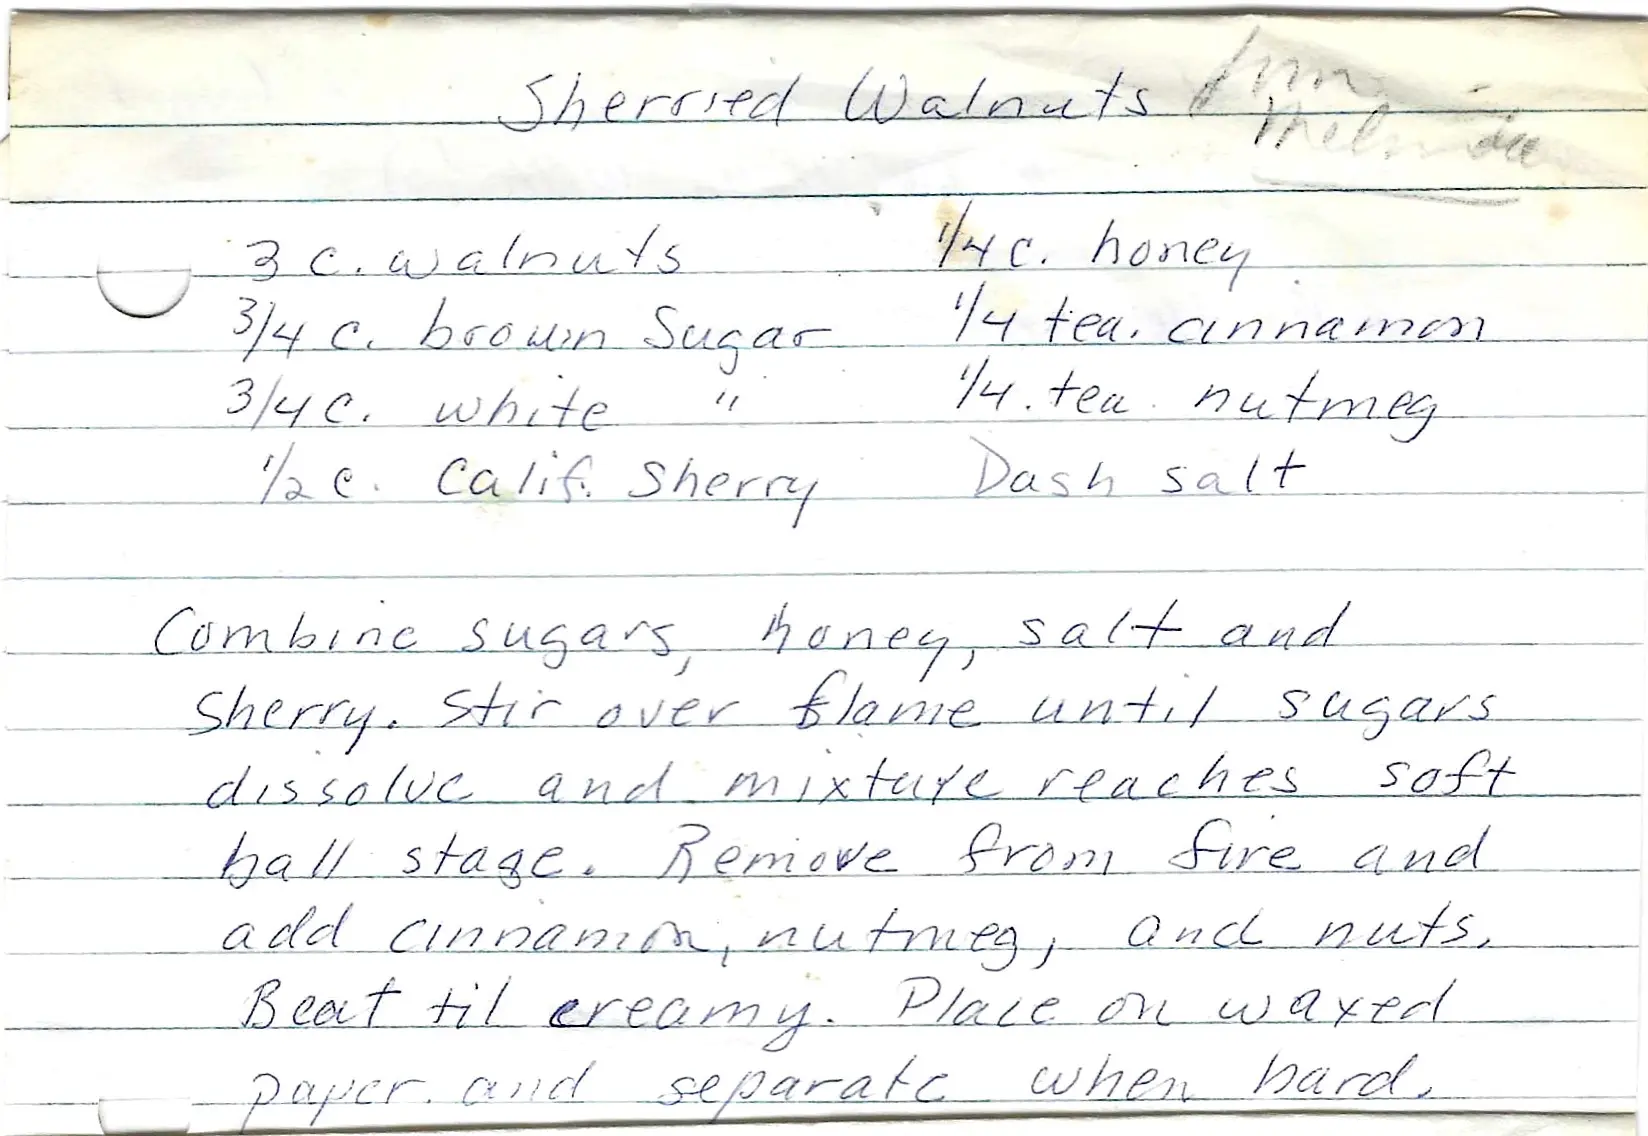 Sherried Walnuts from
Melinda
3 c. walnuts
3/4 c. brown Sugar
3/4 c. white "
1/2 c. Calif. Sherry
1/4 c. honey
1/4 tea. cinnamon
1/4. tea. nutmeg
Dash salt
Combine sugars, honey, salt and
Sherry. Stir over flame until sugars
dissolve and mixture reaches soft
ball stage. Remove from fire and
add cinnamon, nutmeg, and nuts.
Beat til creamy. Place on waxed
paper and separate when hard.